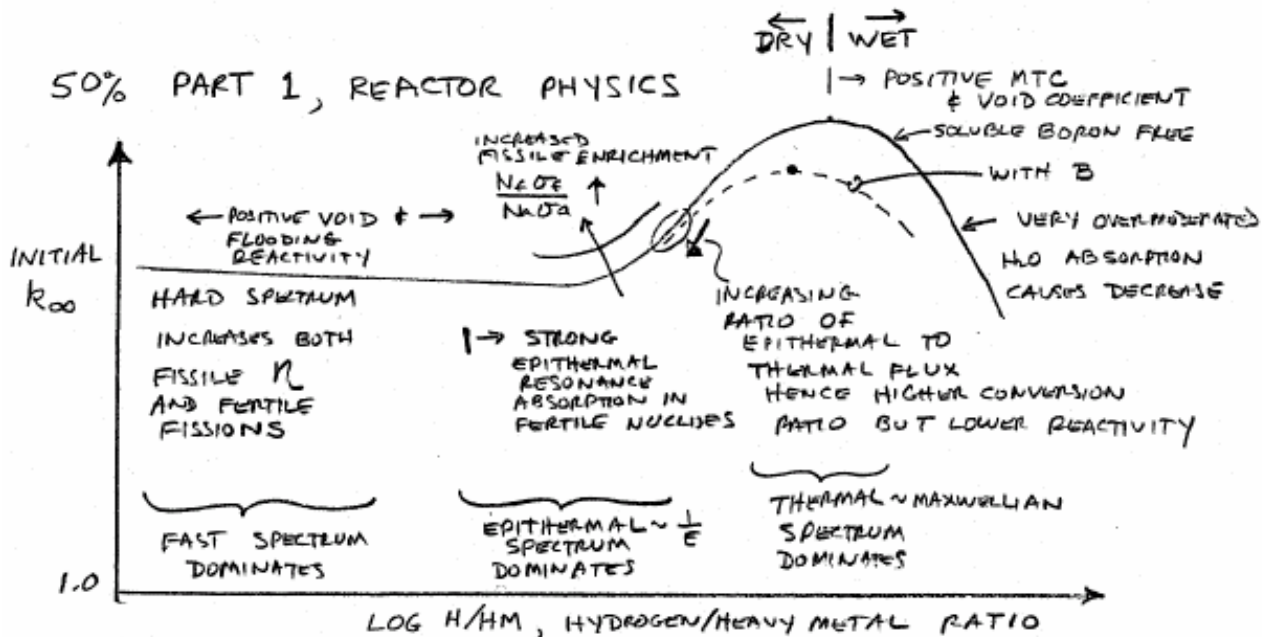 ← DRY | WET →
50% PART 1, REACTOR PHYSICS
|→ POSITIVE MTC
& VOID COEFFICIENT
SOLUBLE BORON FREE
WITH B
VERY OVERMODERATED
H2O ABSORPTION
CAUSES DECREASE
INCREASED
FISSILE ENRICHMENT
↑
← POSITIVE VOID & →
FLOODING
REACTIVITY
INITIAL
k∞
HARD SPECTRUM
INCREASES BOTH
FISSILE η
AND FERTILE
FISSIONS
|→ STRONG
EPITHERMAL
RESONANCE
ABSORPTION IN
FERTILE NUCLIDES
INCREASING
RATIO OF
EPITHERMAL TO
THERMAL FLUX
HENCE HIGHER CONVERSION
RATIO BUT LOWER REACTIVITY
FAST SPECTRUM
DOMINATES
EPITHERMAL ~ 1/E
SPECTRUM
DOMINATES
THERMAL ~ MAXWELLIAN
SPECTRUM
DOMINATES
1.0
LOG H/HM, HYDROGEN/HEAVY METAL RATIO